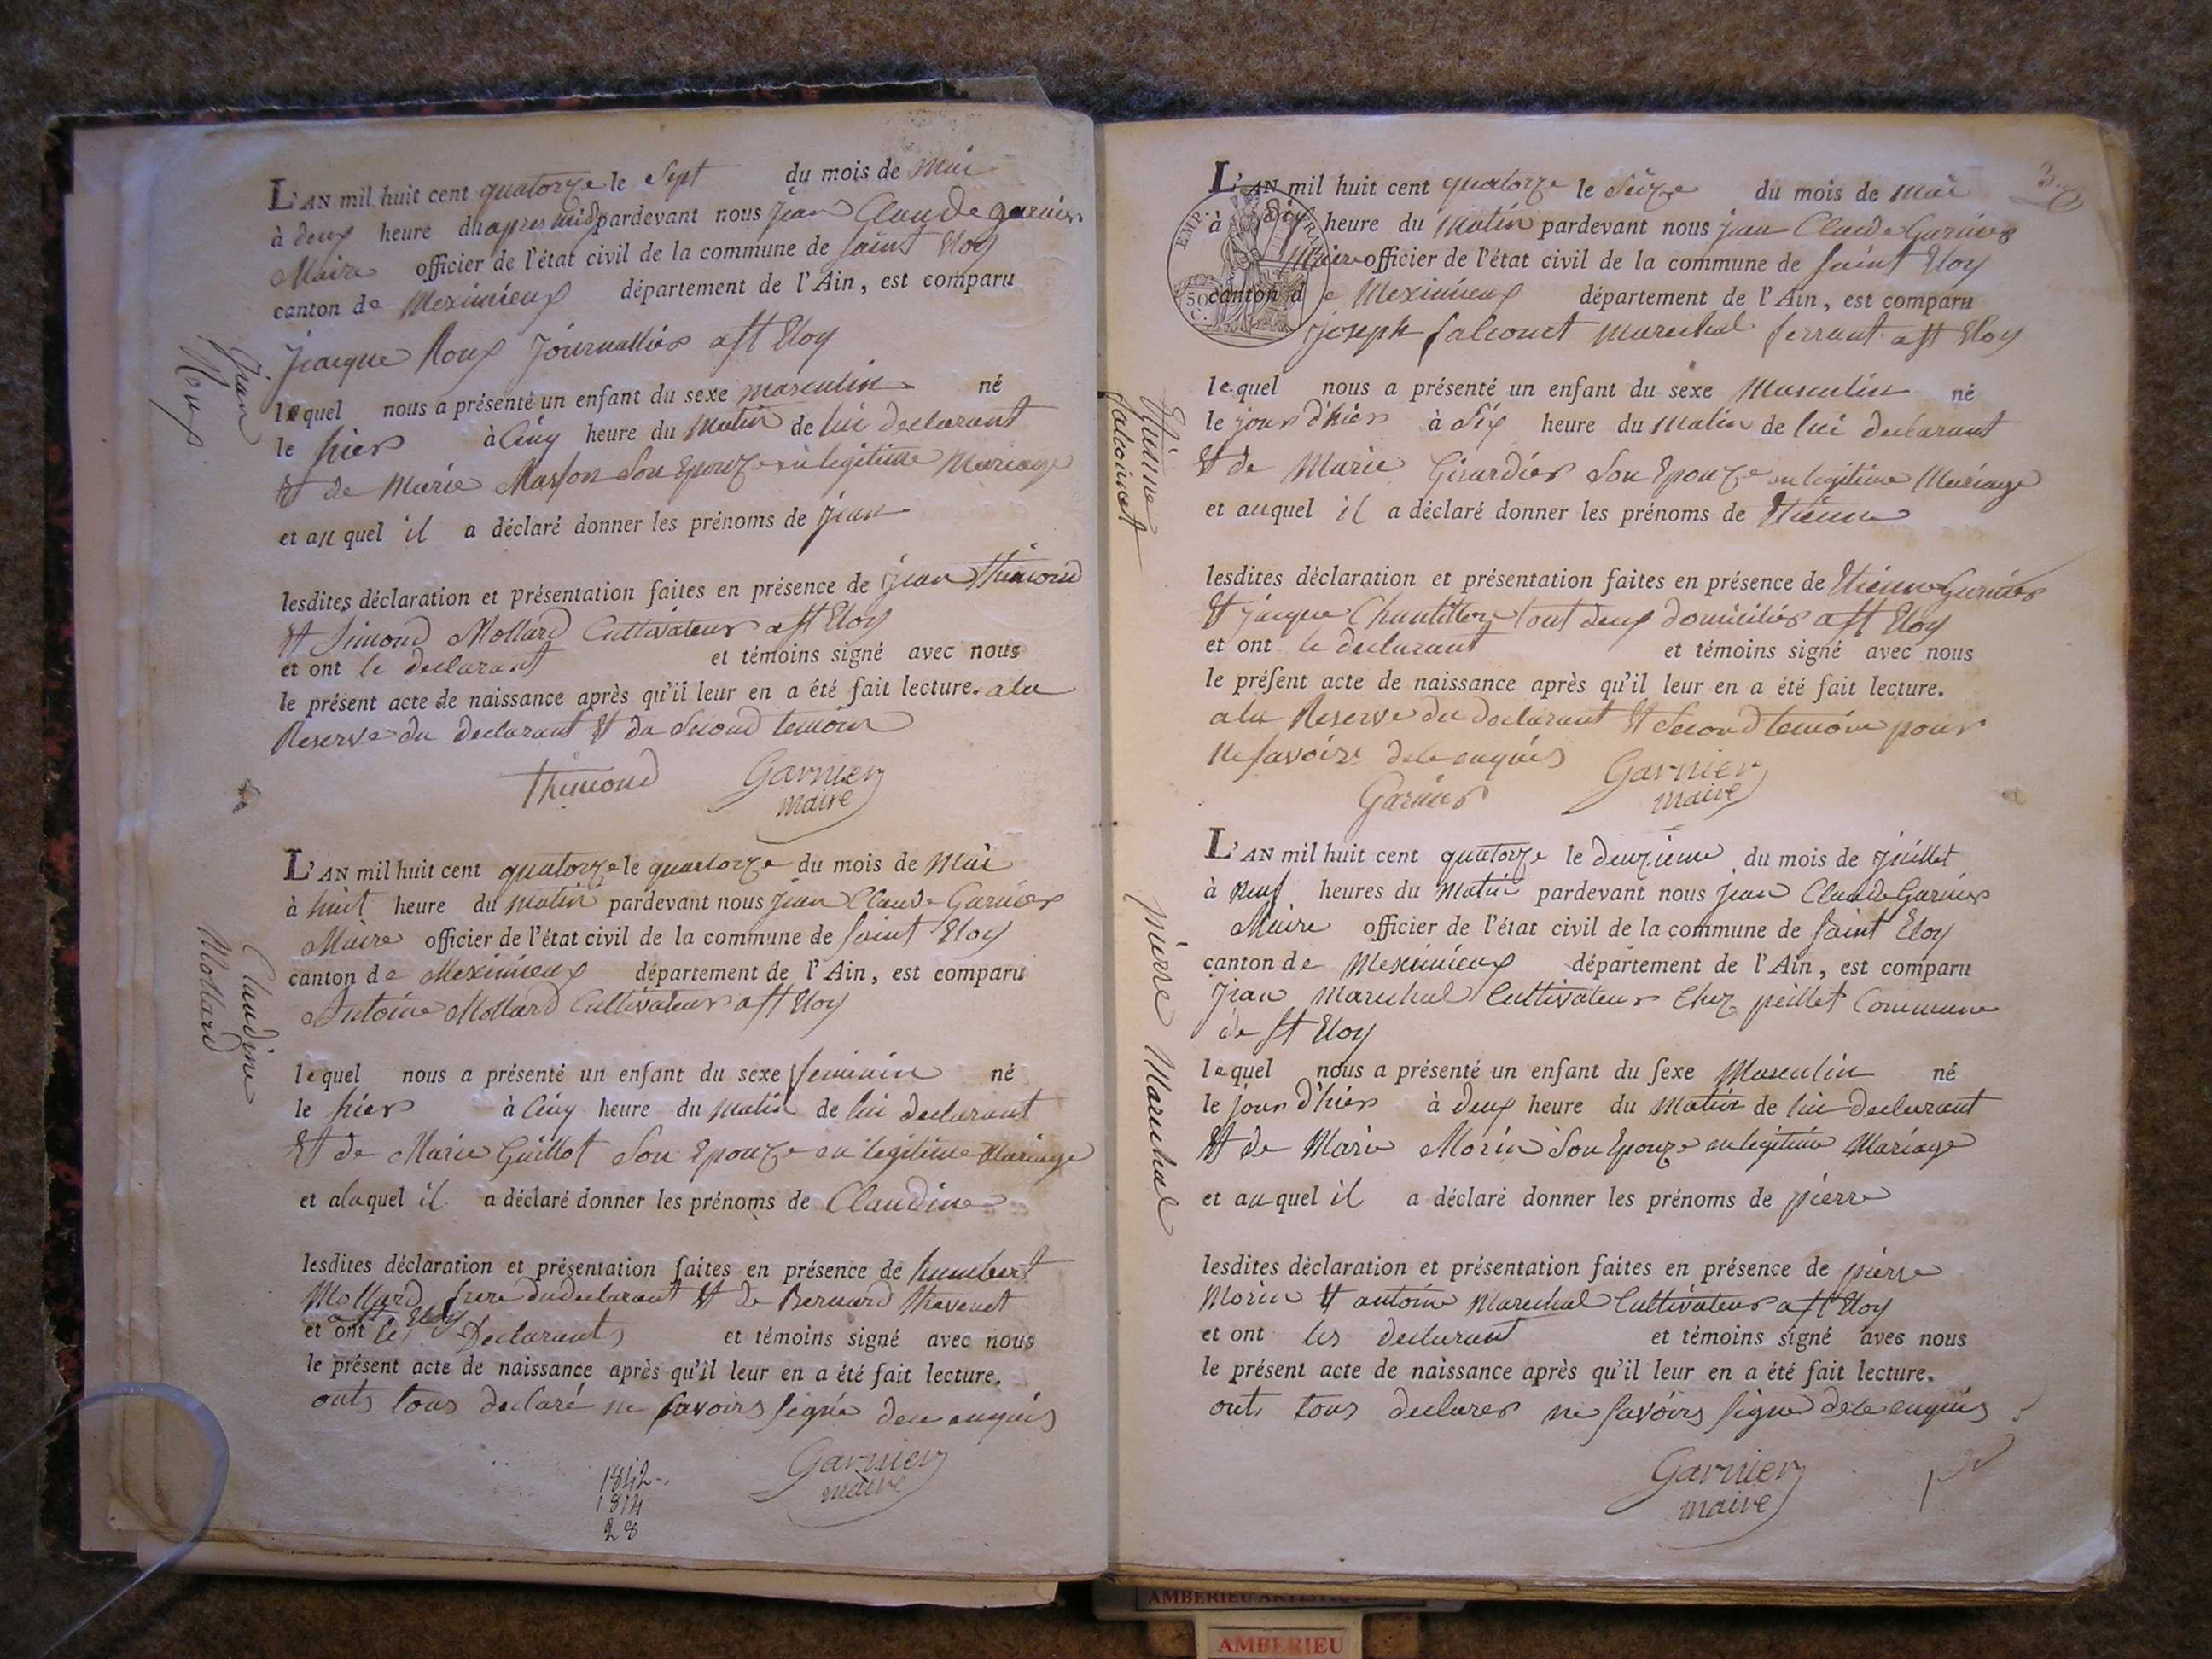 L'AN mil huit cent quatorze le Sept du mois de Mai
à deux heure du apres midy pardevant nous jean Claude garnier
Maire officier de l'état civil de la commune de saint Eloy
canton de Meximieux département de l'Ain, est comparu
Jacque Roux Journallier a st Eloy
lequel nous a présenté un enfant du sexe masculin né
le hier à Cinq heure du Matin de lui declarant
Et de Marie Masson Son Epouze en legitime Mariage
et au quel il a déclaré donner les prénoms de jean
lesdites déclaration et présentation faites en présence de jean Thimond
Et Simond Mollard Cultivateur a st Eloy
et ont le declarant et témoins signé avec nous
le présent acte de naissance après qu'il leur en a été fait lecture. a la
Reserve du declarant Et du Second temoin
Thimond Garnier
maire
Jean
Roux
L'AN mil huit cent quatorze le quatorze du mois de Mai
à huit heure du matin pardevant nous Jean Claude Garnier
Maire officier de l'état civil de la commune de saint Eloy
canton de Meximieux département de l'Ain, est comparu
Antoine Mollard Cultivateur a st Eloy
lequel nous a présenté un enfant du sexe feminin né
le hier à Cinq heure du Matin de lui declarant
Et de Marie Guillot Son Epouze en legitime Mariage
et alaquel il a déclaré donner les prénoms de Claudine
lesdites déclaration et présentation faites en présence de humbert
Mollard frere du declarant Et de Bernard thevenet
a st Eloy
et ont les Declarants et témoins signé avec nous
le présent acte de naissance après qu'il leur en a été fait lecture.
onts tous declaré ne savoirs signé de ce enquis
Garnier
maire
1842
1814
28
Claudine
Mollard
3
L'AN mil huit cent quatorze le Seize du mois de Mai
à dix heure du Matin pardevant nous jean Claude Garnier
Maire officier de l'état civil de la commune de saint Eloy
canton de Meximieux département de l'Ain, est comparu
joseph falcouet marechal ferrant a st Eloy
lequel nous a présenté un enfant du sexe Masculin né
le jour d'hier à Six heure du matin de lui declarant
Et de Marie Girardier Son Epouze en legitime Mariage
et auquel il a déclaré donner les prénoms de Etienne
lesdites déclaration et présentation faites en présence de Etienne Garnier
Et jacque Chantillon tout deux domiciliés a st Eloy
et ont le declarant et témoins signé avec nous
le présent acte de naissance après qu'il leur en a été fait lecture.
a la Reserve du declarant Et Second temoin pour
ne savoire de ce enquis
Garnier Garnier
maire
EMP.
50
C.
Etienne
falcouet
L'AN mil huit cent quatorze le deuxieme du mois de juillet
à neuf heures du Matin pardevant nous jean Claude Garnier
Maire officier de l'état civil de la commune de saint Eloy
canton de Meximieux département de l'Ain, est comparu
Jean Marechal Cultivateur Chez peillet Commune
de st Eloy
lequel nous a présenté un enfant du sexe Masculin né
le jour d'hier à deux heure du Matin de lui declarant
Et de Marie Morin Son Epouze en legitime Mariage
et auquel il a déclaré donner les prénoms de pierre
lesdites déclaration et présentation faites en présence de pierre
Morin Et antoine Marechal Cultivateur a st Eloy
et ont les declarant et témoins signé avec nous
le présent acte de naissance après qu'il leur en a été fait lecture.
onts tous declarer ne savoirs signe de ce enquis
Garnier
maire
pierre Marechal
AMBERIEU ARTISTIQUE
AMBERIEU